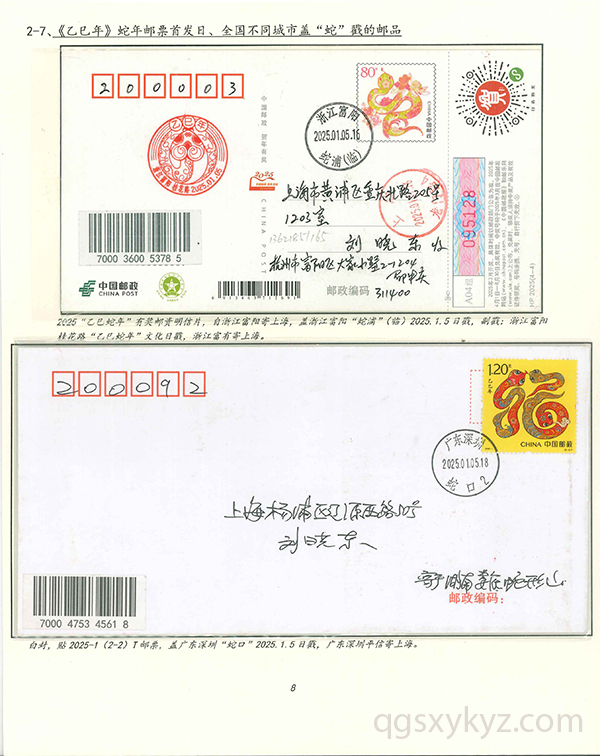 2-7、《乙巳年》蛇年邮票首发日、全国不同城市盖“蛇”戳的邮品
200003
80分
中国邮政
CHINA
贺
乙巳年
2025.01.05
浙江富阳
2025.01.05.16
蛇浦(临)
中国邮政 贺年有奖
CHINA POST
2025
上海市黄浦区重庆北路205号
1203室
刘晓东收
13621851165
杭州市富阳区
2-1204
邮政编码
311400
7000 3600 5378 5
中国邮政
CHINA POST
095128
A04组
HP 2025(4-4)
2025“乙巳蛇年”有奖邮资明信片，自浙江富阳寄上海，盖浙江富阳“蛇浦”(临)2025.1.5日戳，副戳：浙江富阳
桂花路“乙巳蛇年”文化日戳，浙江富有寄上海。
200092
1.20元
乙巳年
CHINA 中国邮政
广东深圳
2025.01.05.18
蛇口2
上海杨浦区辽源西路
刘晓东
邮政编码：
7000 4753 4561 8
白封，贴2025-1(2-2)T邮票，盖广东深圳“蛇口”2025.1.5日戳，广东深圳平信寄上海。
8
qgsxykyz.com